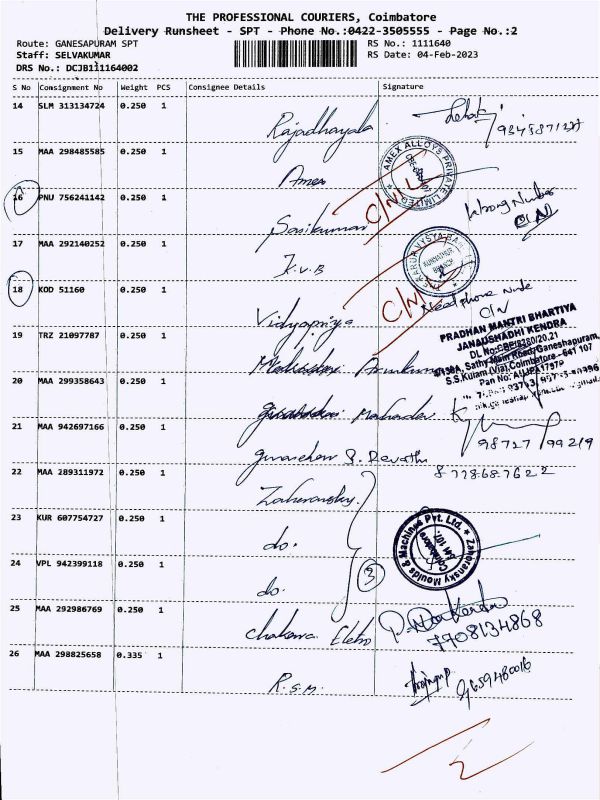 THE PROFESSIONAL COURIERS, Coimbatore
Delivery Runsheet - SPT - Phone No.:0422-3505555 - Page No.:2
Route: GANESAPURAM SPT
RS No.: 1111640
Staff: SELVAKUMAR
RS Date: 04-Feb-2023
DRS No.: DCJB111164002
S No Consignment No Weight PCS Consignee Details Signature
14 SLM 313134724 0.250 1
Rajadhayala
15 MAA 298485585 0.250 1
Amex
AMEX ALLOYS PRIVATE LIMITED
16 PNU 756241142 0.250 1
Sasikumar
C/N
Wrong Number
C/N
17 MAA 292140252 0.250 1
K.V.B
KURUMATHUR BRANCH
18 KOD 51160 0.250 1
Vidyapriya
C/N
Need phone
C/N
19 TRZ 21097787 0.250 1
Arunkumar
PRADHAN MANTRI BHARTIYA
JANAUSHADHI KENDRA
Sathy Main Road, Ganeshapuram,
S.S.Kulam (Via) Coimbatore - 641 107
20 MAA 299358643 0.250 1
Mahadev
21 MAA 942697166 0.250 1
S. Revathi
98727 99219
22 MAA 289311972 0.250 1
Zahoransky
8778687622
23 KUR 607754727 0.250 1
do.
Zahoransky Moulds & Machines Pvt. Ltd.
Coimbatore
641 107.
24 VPL 942399118 0.250 1
do.
3
25 MAA 292986769 0.250 1
Chakara Elebo
7708134868
26 MAA 298825658 0.335 1
R.S.M.
9659480016